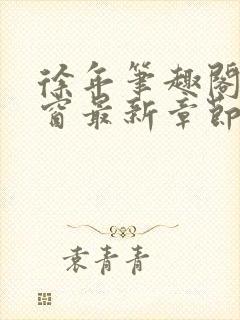 徐年笔趣阁
窗最新章節
袁青青